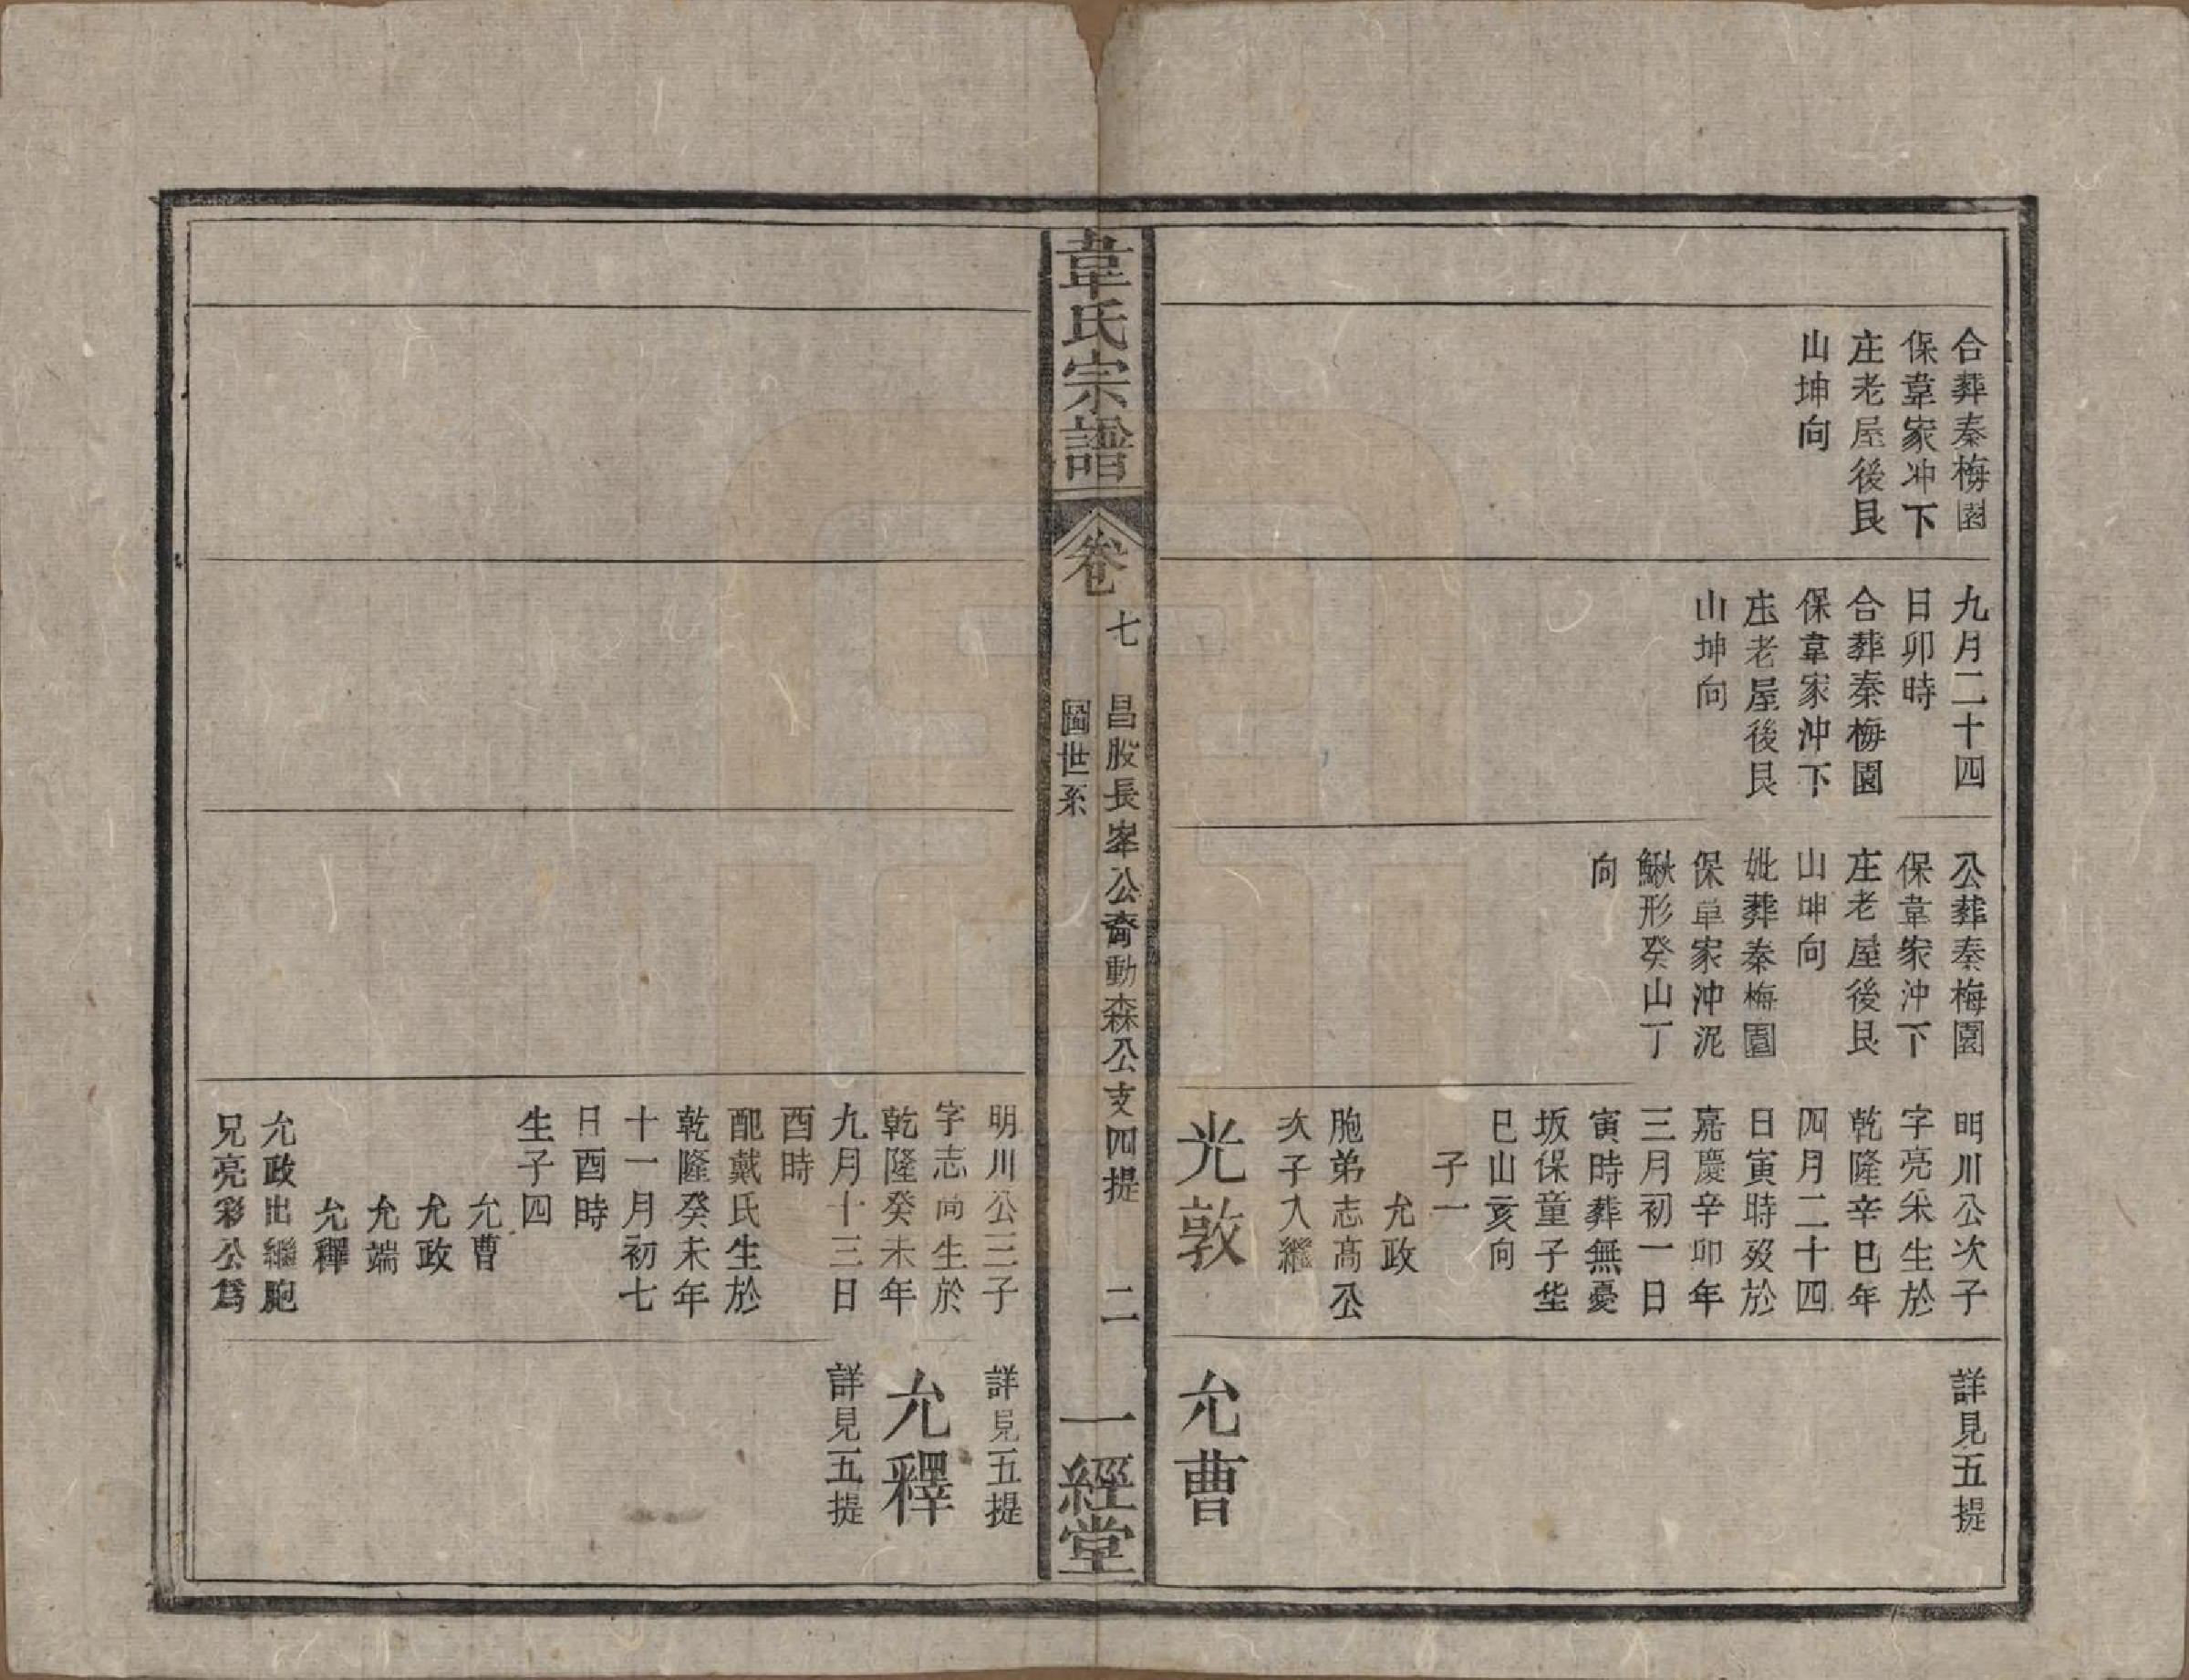 合葬秦梅園
保韋家冲下
庄老屋後艮
山坤向
九月二十四
日卯時
合葬秦梅園
保韋家沖下
庄老屋後艮
山坤向
公葬秦梅園
保韋家沖下
庄老屋後艮
山坤向
妣葬秦梅園
保韋家沖泥
鰍形癸山丁
向
明川公次子
字亮采生於
乾隆辛巳年
四月二十四
日寅時歿於
嘉慶辛卯年
三月初一日
寅時葬無憂
坂保童子垈
巳山亥向
子一
允政
胞弟志高公
次子入繼
光敦
詳見五提
允曹
韋氏宗譜
卷七
昌股長峯公裔動森公支四提
圖世系
二
一經堂
明川公三子
字志尚生於
乾隆癸未年
九月十三日
酉時
配戴氏生於
乾隆癸未年
十一月初七
日酉時
生子四
允曹
允政
允端
允釋
允政出繼胞
兄亮彩公爲
詳見五提
允釋
詳見五提